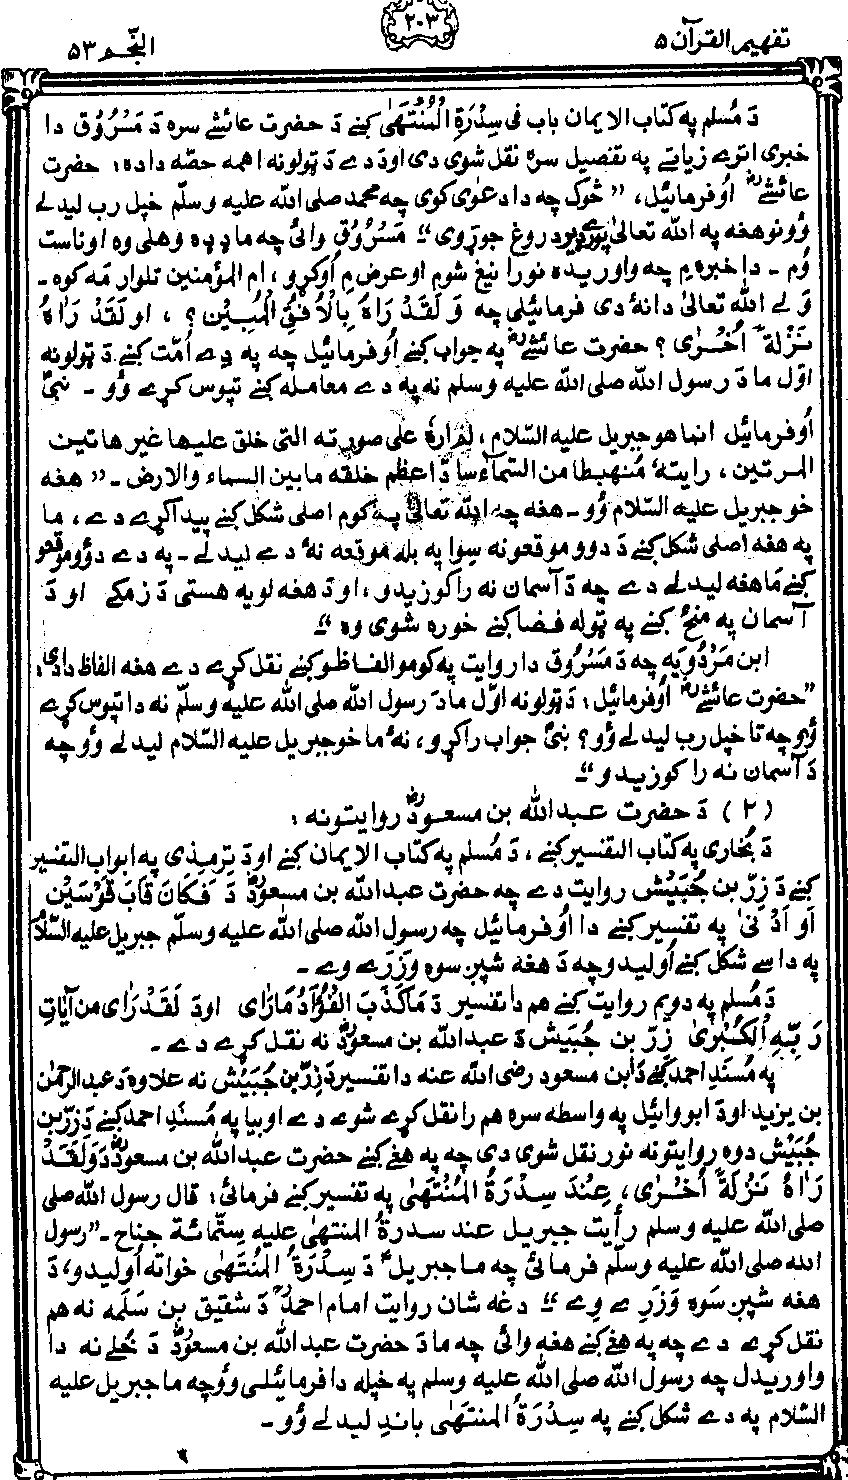 تفهيم القرآن ۵
۲۰۳
النّجم ۵۳
دَ مُسلم په کتاب الایمان باب فی سِدْرَةِ الْمُنْتَهٰی کښے دَ حضرت عائشے سره دَ مَسْرُوْق دا
خبری اترے زیاتے په تفصیل سره نقل شوی دی اودَ دے دَ ټولونه اهمه حصّه داده: حضرت
عائشےؓ اُوفرمائیل، “ څوک چه دا دعوٰی کوی چه محمد صلی الله علیه وسلّم خپل رب لیدلے
وُونو هغه په الله تعالیٰ دروغ جوړوی“ مَسْرُوْق وائی چه ما ډډه وهلی وه او ناست
وُم - دا خبره مِ چه واوریده نورا نیغ شوم او عرض مِ اُوکړو، ام المؤمنین تلوار مَه کوه -
وَلے الله تعالیٰ دانهٔ دی فرمائیلی چه وَلَقَدْ رَاٰهُ بِالْاُفُقِ الْمُبِیْن؟ ، او لَقَدْ رَاٰهُ
نَزْلَةً اُخْرٰی؟ حضرت عائشےؓ په جواب کښے اُوفرمائیل چه په دِے اُمّت کښے دَ ټولونه
اوّل ما دَ رسول الله صلی الله علیه وسلم نه په دے معامله کښے تپوس کړے وُو - نبیؐ
اُوفرمائیل انما هو جبریل علیه السّلام، لم اره علی صورته التی خلق علیها غیر هاتین
المرتین، رایته مُنهبطا من السّمآء سادّا عظم خلقه مابین السماء والارض -“ هغه
خو جبریل علیه السّلام وُو - هغه چه الله تعالیٰ په کوم اصلی شکل کښے پیدا کړے دے، ما
په هغه اصلی شکل کښے دَ دوو موقعونه سِوا په بله موقعه نهٔ دے لیدلے - په دے دوٗو موقعو
کښے ما هغه لیدلے دے چه دَ آسمان نه راکوزیدو، اودَ هغه لویه هستی دَ زمکے اودَ
آسمان په منځ کښے په ټوله فضا کښے خوره شوی وه“-
ابن مَرْدُوَیه چه دَ مَسْرُوْق دا روایت په کومو الفاظو کښے نقل کړے دے هغه الفاظ دادی:
“حضرت عائشےؓ اُوفرمائیل: دَ ټولونه اوّل ما دَ رسول الله صلی الله علیه وسلّم نه دا تپوس کړے
وُو چه تا خپل رب لیدلے وُو؟ نبیؐ جواب راکړو، نهٔ ما خو جبریل علیه السّلام لیدلے وُو چه
دَ آسمان نه را کوزیدو“-
(۲) دَ حضرت عبدالله بن مسعودؓ روایتونه:
دَ بُخاری په کتاب التفسیر کښے، دَ مُسلم په کتاب الایمان کښے اودَ تِرمِذی په ابواب التفسیر
کښے دَ زِرّ بن حُبَیْش روایت دے چه حضرت عبدالله بن مسعودؓ دَ فَکَانَ قَابَ قَوْسَیْن
اَوْ اَدْنٰی په تفسیر کښے دا اُوفرمائیل چه رسول الله صلی الله علیه وسلّم جبریل علیه السّلام
په داسے شکل کښے اُولیدو چه دَ هغه شپږ سوه وَزرے وے -
دَ مُسلم په دویم روایت کښے هم دا تفسیر دَ مَا کَذَبَ الْفُؤَادُ مَا رَاٰی اودَ لَقَدْ رَاٰی مِن آیَاتِ
رَبِّهِ الْکُبْرٰی زِرّ بن حُبَیْش دَ عبدالله بن مسعودؓ نه نقل کړے دے -
په مُسنَدِ احمد کښے دَ ابن مسعود رضی الله عنه دا تفسیر دَ زِرّ بن حُبَیْش نه علاوه دَ عبدالرحمٰن
بن یزید اودَ ابووائیل په واسطه سره هم رانقل کړے شوے دے او بیا په مُسنَدِ احمد کښے دَ زِرّ بن
حُبَیْش دوه روایتونه نور نقل شوی دی چه په هغے کښے حضرت عبدالله بن مسعودؓ دَ وَلَقَدْ
رَاٰهُ نَزْلَةً اُخْرٰی، عِنْدَ سِدْرَةِ الْمُنْتَهٰی په تفسیر کښے فرمائی: قال رسول الله صلی
صلی الله علیه وسلم رأیت جبریل عند سدرة المنتهیٰ علیه ستّمائة جناح -“رسول
الله صلی الله علیه وسلّم فرمائی چه ما جبریلؑ دَ سِدْرَةُ الْمُنْتَهٰی خواته اُولیدو، دَ
هغه شپږ سَوه وَزرِے وِے“ دغه شان روایت امام احمدؒ دَ شقیق بن سَلَمه نه هم
نقل کړے دے چه په هغے کښے هغه وائی چه ما دَ حضرت عبدالله بن مسعودؓ دَ خُلے نه دا
واوریدل چه رسول الله صلی الله علیه وسلم په خپله دا فرمائیلی وُو چه ما جبریل علیه
السّلام په دے شکل کښے په سِدْرَةُ الْمنتَهٰی باندِ لیدلے وُو -